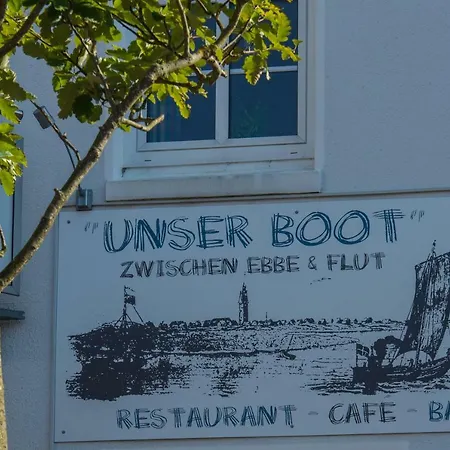 "UNSER BOOT"
ZWISCHEN EBBE & FLUT
RESTAURANT - CAFE - BA